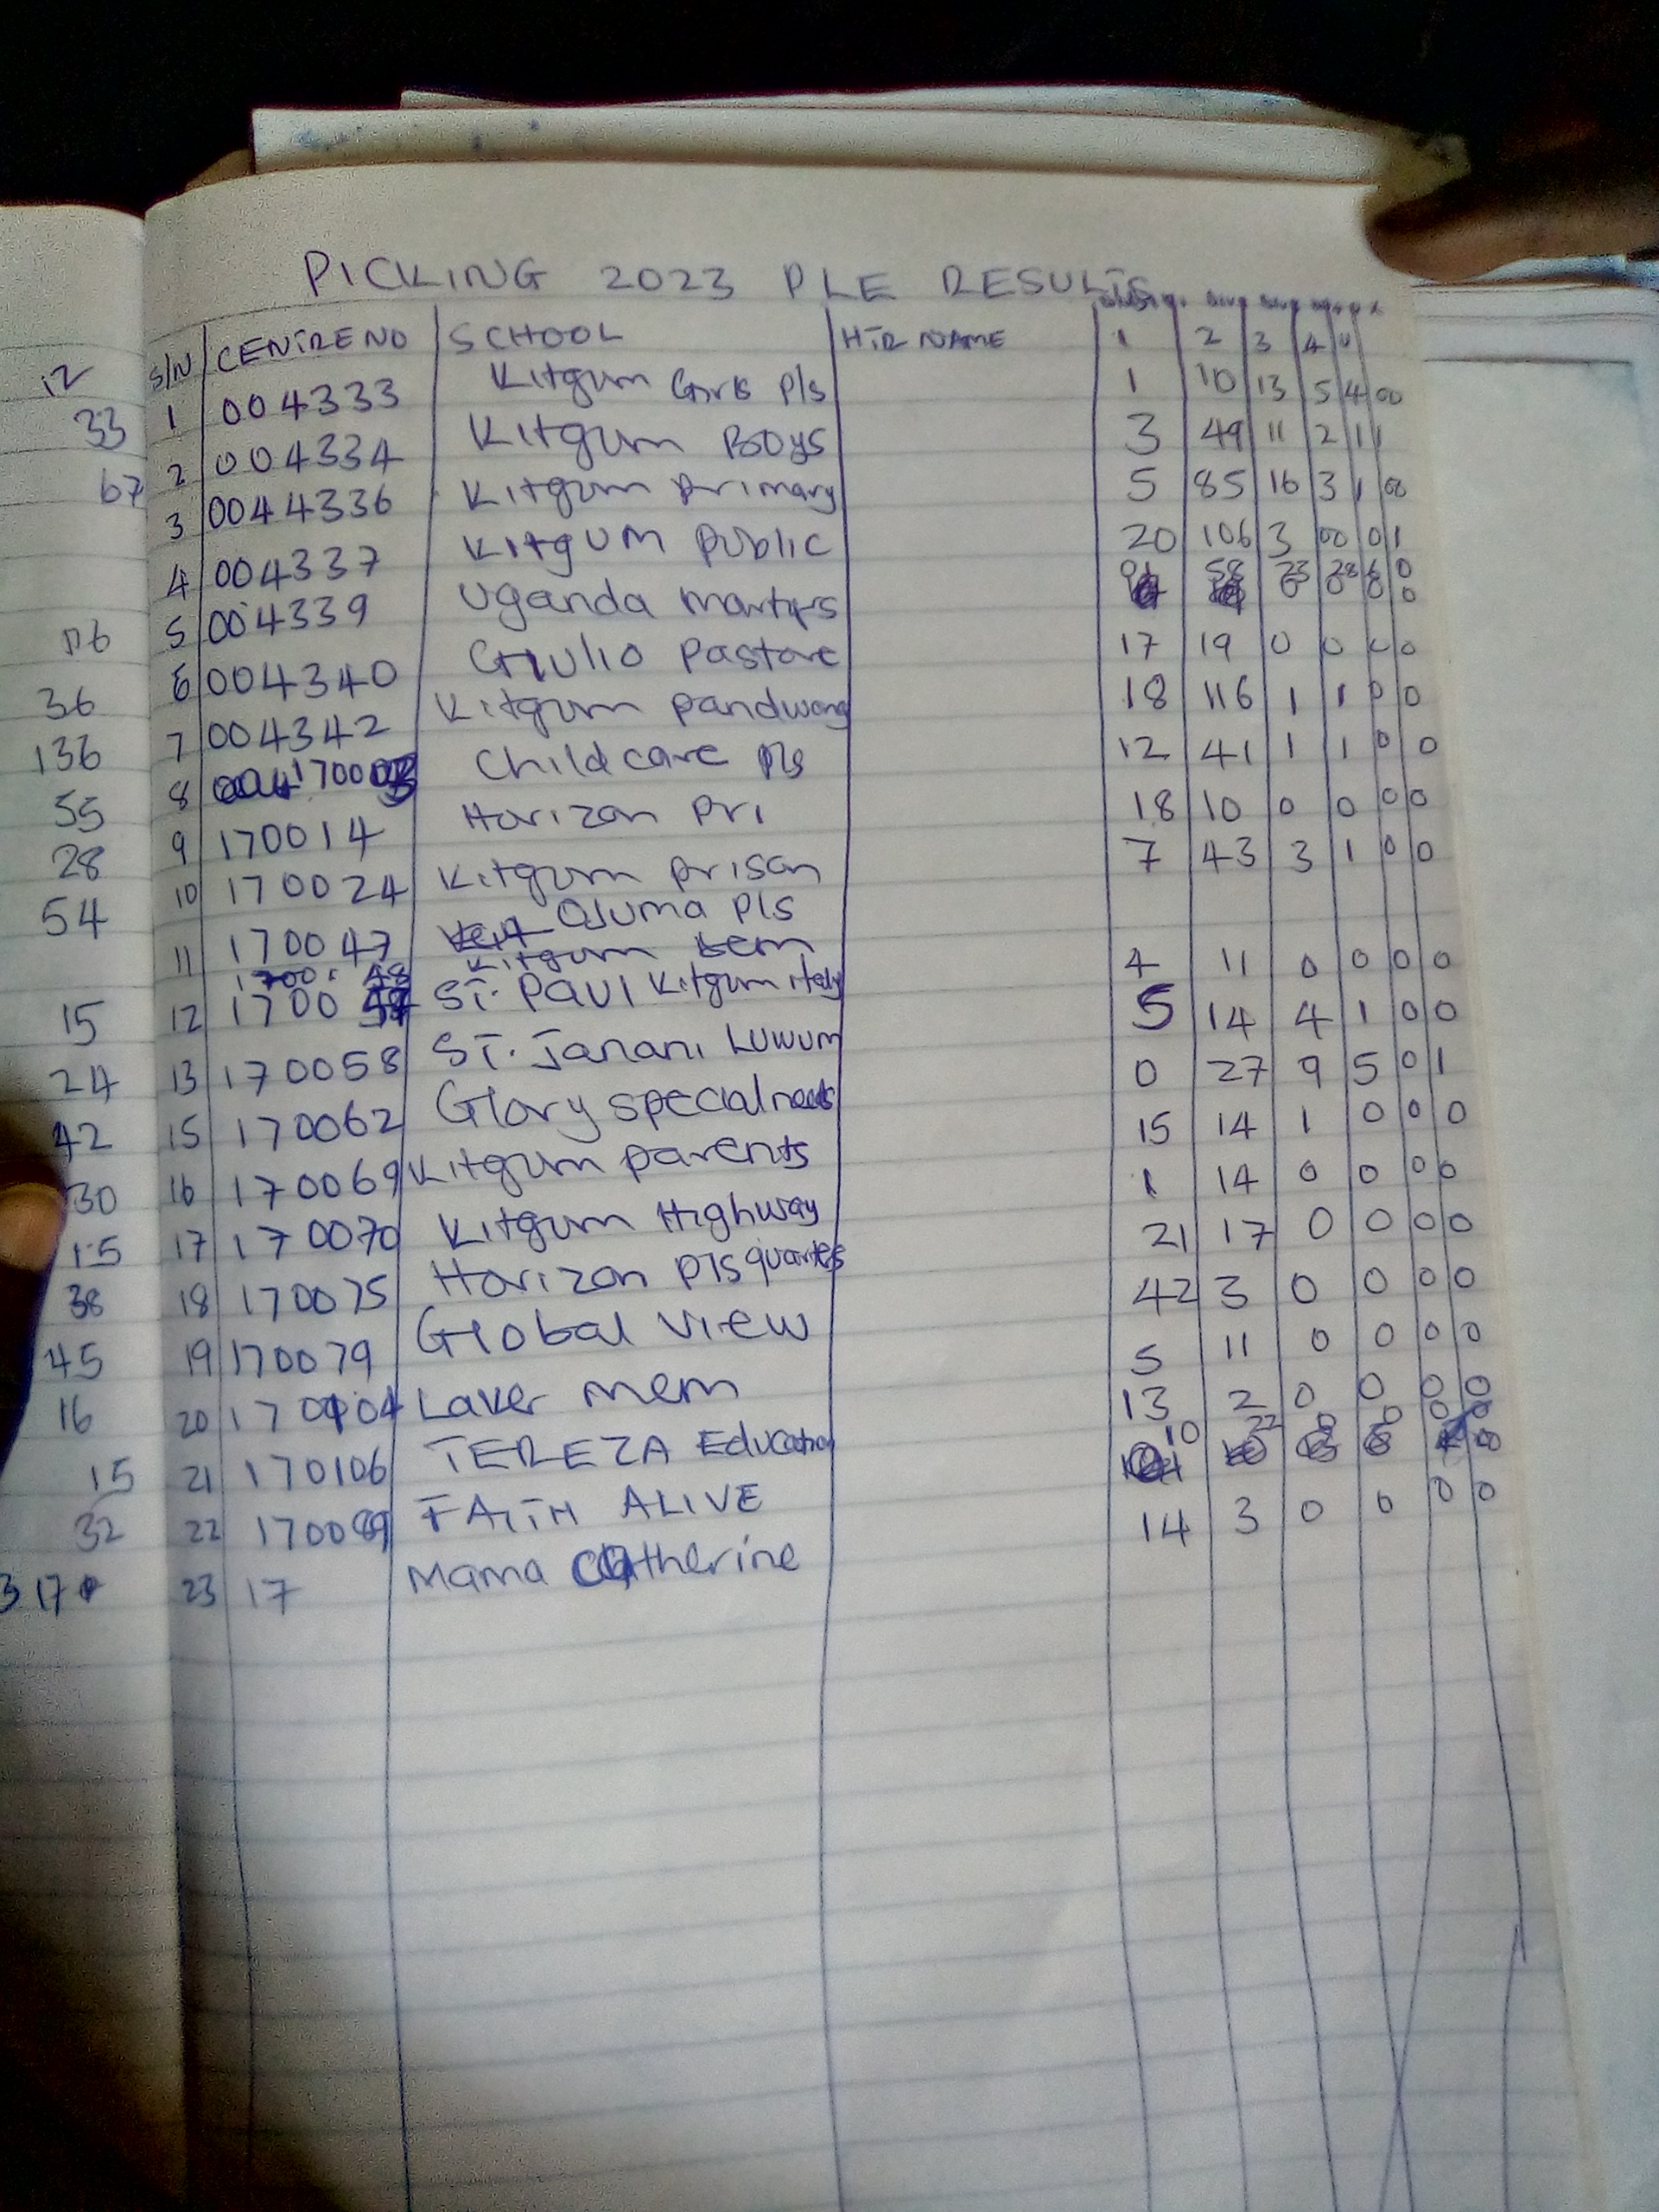 PICKING 2023 PLE RESULTS
S/N CENTRE NO SCHOOL HTR NAME 1 2 3 4 U X
1 004333 Kitgum Girls P/s 1 10 13 5 4 00
33 2 004334 Kitgum Boys 3 49 11 2 1 1
67 3 0044336 Kitgum primary 5 85 16 3 1 00
4 004337 Kitgum public 20 106 3 00 0 1
5 004339 Uganda martyrs 01 58 23 28 6 0
116 6 004340 Giulio Pastore 17 19 0 0 0 0
36 7 004342 Kitgum pandwong 18 116 1 1 0 0
136 8 170003 Child care P/s 12 41 1 1 0 0
55 9 170014 Horizon Pri 18 10 0 0 0 0
28 10 170024 Kitgum prison 7 43 3 1 0 0
54 11 170047 Ojuma P/s
Kitgum dem 4 11 0 0 0 0
15 12 1700 ST. PAUL Kitgum italy 5 14 4 1 0 0
24 13 170058 ST. Janani Luwum 0 27 9 5 0 1
42 15 170062 Glory special needs 15 14 1 0 0 0
30 16 170069 Kitgum parents 1 14 0 0 0 0
15 17 170070 Kitgum Highway 21 17 0 0 0 0
38 18 170075 Horizon P/s quarters 42 3 0 0 0 0
45 19 170079 Global View 5 11 0 0 0 0
16 20 170104 Laker mem 13 2 0 0 0 0
15 21 170106 TEREZA Education 10 22 0 0 0 0
32 22 170089 FAITH ALIVE 14 3 0 0 0 0
17 23 17 Mama Catherine